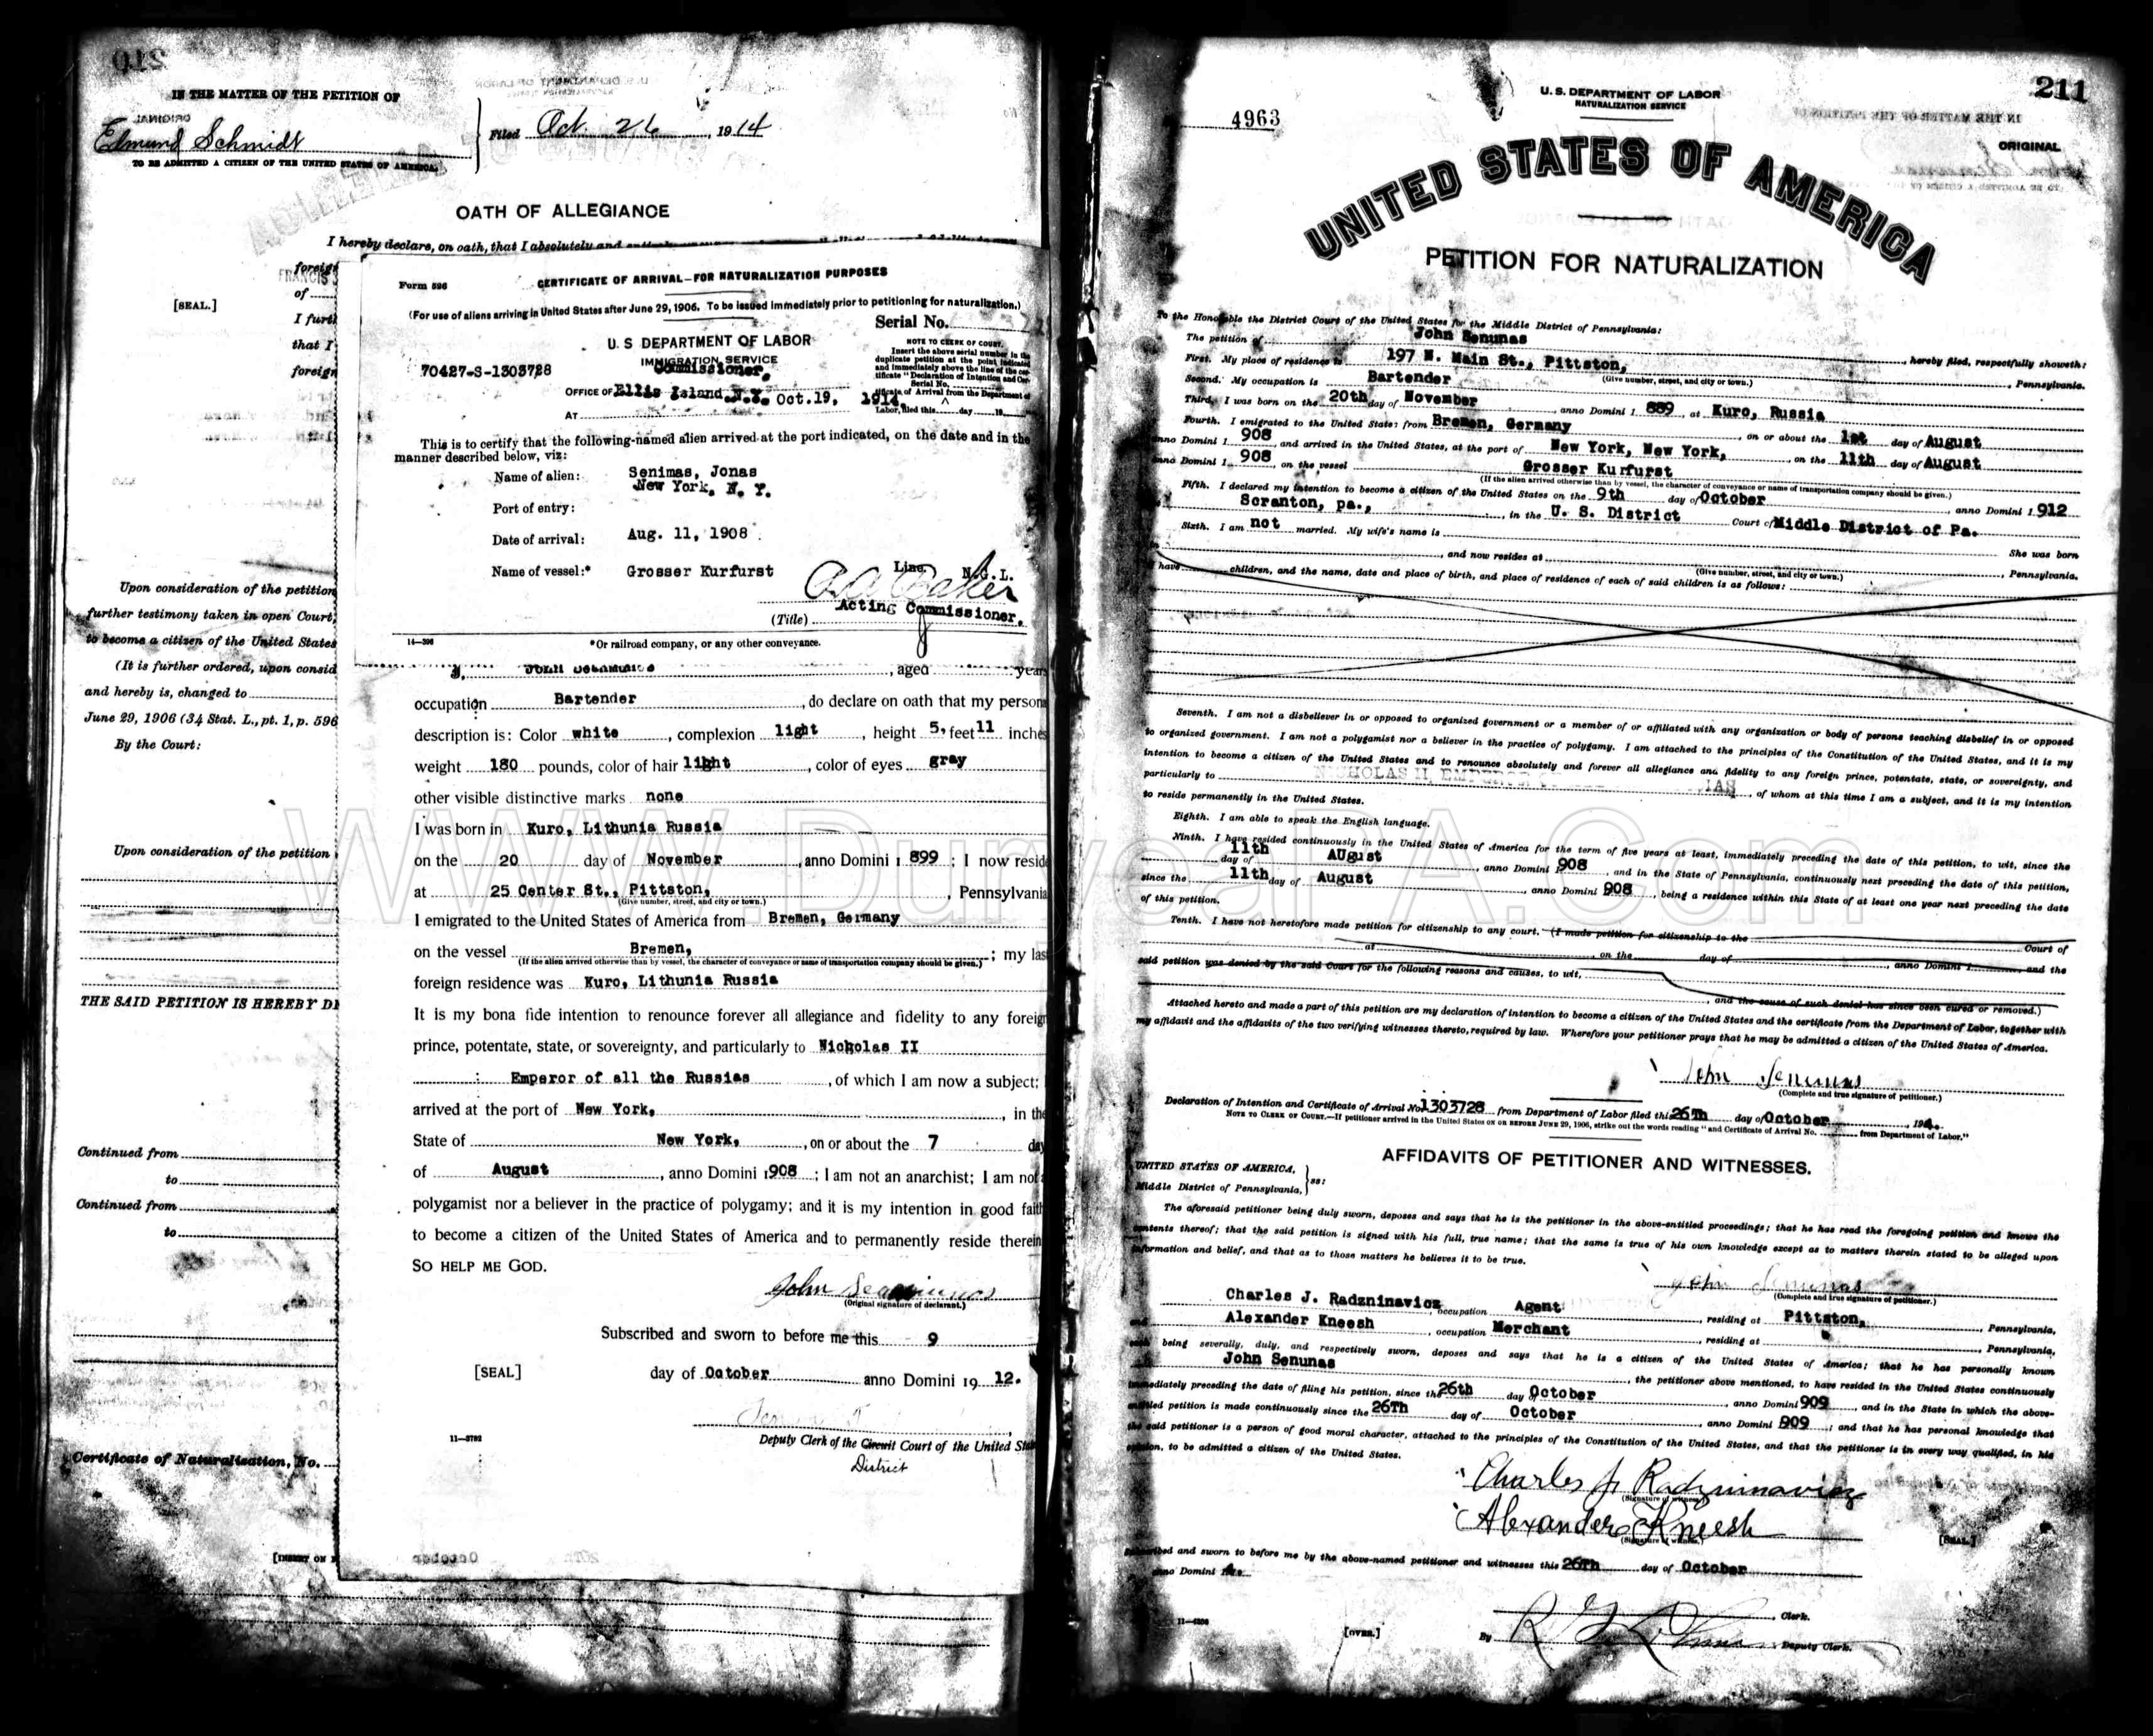 IN THE MATTER OF THE PETITION OF
ORIGINAL
Edmund Schmidt
TO BE ADMITTED A CITIZEN OF THE UNITED STATES OF AMERICA.
Filed Oct. 26, 1914
OATH OF ALLEGIANCE
I hereby declare, on oath, that I absolutely and
foreign
FRANCIS J
of
[SEAL.]
I furth
that I
foreign
Upon consideration of the petition
further testimony taken in open Court,
to become a citizen of the United States
(It is further ordered, upon consid
and hereby is, changed to
June 29, 1906 (34 Stat. L., pt. 1, p. 596
By the Court:
Upon consideration of the petition
THE SAID PETITION IS HEREBY DE
Continued from
to
Continued from
to
Certificate of Naturalization, No.
Form 526
CERTIFICATE OF ARRIVAL—FOR NATURALIZATION PURPOSES
(For use of aliens arriving in United States after June 29, 1906. To be issued immediately prior to petitioning for naturalization.)
Serial No.
U. S DEPARTMENT OF LABOR
NOTE TO CLERK OF COURT.
Insert the above serial number in the
duplicate petition at the point indicated
and immediately above the line of the cer
tificate "Declaration of Intention and Cer-
tificate of Arrival from the Department of
Labor, filed this day 19
70427-S-1303728
IMMIGRATION SERVICE
Commissioner,
OFFICE OF Ellis Island, N.Y. Oct.19, 1914.
AT
This is to certify that the following-named alien arrived at the port indicated, on the date and in the
manner described below, viz:
Name of alien: Senimas, Jonas
New York, N. Y.
Port of entry:
Date of arrival: Aug. 11, 1908
Name of vessel:* Grosser Kurfurst Line, N.G.L.
Acting Commissioner.
(Title)
14—396
*Or railroad company, or any other conveyance.
I, John , aged years
occupation Bartender , do declare on oath that my person
description is: Color white , complexion light , height 5, feet 11 inches
weight 180 pounds, color of hair light , color of eyes gray
other visible distinctive marks none
I was born in Kuro, Lithunia Russia
on the 20 day of November , anno Domini 1 899 ; I now reside
at 25 Center St., Pittston, , Pennsylvania
(Give number, street, and city or town.)
I emigrated to the United States of America from Bremen, Germany
on the vessel Bremen, ; my las
(If the alien arrived otherwise than by vessel, the character of conveyance or name of transportation company should be given.)
foreign residence was Kuro, Lithunia Russia
It is my bona fide intention to renounce forever all allegiance and fidelity to any foreign
prince, potentate, state, or sovereignty, and particularly to Nicholas II
Emperor of all the Russias , of which I am now a subject;
arrived at the port of New York, , in the
State of New York, , on or about the 7 day
of August , anno Domini 1908 ; I am not an anarchist; I am not
polygamist nor a believer in the practice of polygamy; and it is my intention in good faith
to become a citizen of the United States of America and to permanently reside therein
SO HELP ME GOD.
John
(Original signature of declarant.)
Subscribed and sworn to before me this 9
[SEAL] day of October anno Domini 19 12.
11—3782
Deputy Clerk of the Circuit Court of the United Sta
District
WWW.DuryeaPA.Com
211
U. S. DEPARTMENT OF LABOR
NATURALIZATION SERVICE
4963
ORIGINAL
UNITED STATES OF AMERICA
PETITION FOR NATURALIZATION
To the Honorable the District Court of the United States for the Middle District of Pennsylvania:
The petition of John Senunas , hereby filed, respectfully showeth:
First. My place of residence is 197 N. Main St., Pittston, , Pennsylvania.
(Give number, street, and city or town.)
Second. My occupation is Bartender
Third. I was born on the 20th day of November , anno Domini 1 889 , at Kuro, Russia
Fourth. I emigrated to the United States from Bremen, Germany , on or about the 1st day of August
anno Domini 1 908 , and arrived in the United States, at the port of New York, New York, , on the 11th day of August
anno Domini 1 908 , on the vessel Grosser Kurfurst
(If the alien arrived otherwise than by vessel, the character of conveyance or name of transportation company should be given.)
Fifth. I declared my intention to become a citizen of the United States on the 9th day of October , anno Domini 1 912
Scranton, pa., , in the U. S. District Court of Middle District of Pa.
Sixth. I am not married. My wife's name is She was born
in , and now resides at , Pennsylvania.
(Give number, street, and city or town.)
I have children, and the name, date and place of birth, and place of residence of each of said children is as follows:
Seventh. I am not a disbeliever in or opposed to organized government or a member of or affiliated with any organization or body of persons teaching disbelief in or opposed
to organized government. I am not a polygamist nor a believer in the practice of polygamy. I am attached to the principles of the Constitution of the United States, and it is my
intention to become a citizen of the United States and to renounce absolutely and forever all allegiance and fidelity to any foreign prince, potentate, state, or sovereignty, and
particularly to NICHOLAS II, EMPEROR , of whom at this time I am a subject, and it is my intention
to reside permanently in the United States.
Eighth. I am able to speak the English language.
Ninth. I have resided continuously in the United States of America for the term of five years at least, immediately preceding the date of this petition, to wit, since the
11th day of AUgust , anno Domini 908 , and in the State of Pennsylvania, continuously next preceding the date of this petition,
since the 11th day of August , anno Domini 908 , being a residence within this State of at least one year next preceding the date
of this petition.
Tenth. I have not heretofore made petition for citizenship to any court. (I made petition for citizenship to the Court of
at , on the day of , anno Domini 1 and the
said petition was denied by the said Court for the following reasons and causes, to wit,
, and the cause of such denial has since been cured or removed.)
Attached hereto and made a part of this petition are my declaration of intention to become a citizen of the United States and the certificate from the Department of Labor, together with
my affidavit and the affidavits of the two verifying witnesses thereto, required by law. Wherefore your petitioner prays that he may be admitted a citizen of the United States of America.
John Senunas
(Complete and true signature of petitioner.)
Declaration of Intention and Certificate of Arrival No. 1303728 from Department of Labor filed this 26Th day of October , 191
NOTE TO CLERK OF COURT.—If petitioner arrived in the United States on or BEFORE JUNE 29, 1906, strike out the words reading "and Certificate of Arrival No. from Department of Labor."
AFFIDAVITS OF PETITIONER AND WITNESSES.
UNITED STATES OF AMERICA,
Middle District of Pennsylvania, } ss:
The aforesaid petitioner being duly sworn, deposes and says that he is the petitioner in the above-entitled proceedings; that he has read the foregoing petition and knows the
contents thereof; that the said petition is signed with his full, true name; that the same is true of his own knowledge except as to matters therein stated to be alleged upon
information and belief, and that as to those matters he believes it to be true.
John Senunas
(Complete and true signature of petitioner.)
Charles J. Radzninavicz , occupation Agent , residing at Pittston, , Pennsylvania,
and Alexander Kneesh , occupation Merchant , residing at , Pennsylvania,
each being severally, duly, and respectively sworn, deposes and says that he is a citizen of the United States of America; that he has personally known
John Senunas , the petitioner above mentioned, to have resided in the United States continuously
immediately preceding the date of filing his petition, since the 26th day of October , anno Domini 909 , and in the State in which the above-
entitled petition is made continuously since the 26Th day of October , anno Domini 909 , and that he has personal knowledge that
the said petitioner is a person of good moral character, attached to the principles of the Constitution of the United States, and that the petitioner is in every way qualified, in his
opinion, to be admitted a citizen of the United States.
Charles J. Radzninavicz
(Signature of witness.)
Alexander Kneesh
(Signature of witness.)
[SEAL.]
Subscribed and sworn to before me by the above-named petitioner and witnesses this 26Th day of October
anno Domini
, Clerk.
11—4206
[OVER.]
By , Deputy Clerk.